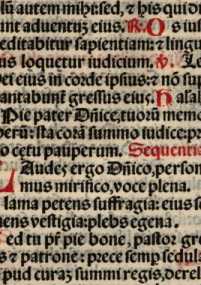 lũ autem mihi: sed, ⁊ his qui di
unt aduentũ eius. R. Os ius
editabitur sapientiam: ⁊ lingu
us loquetur iudicium. v. Lex
dei eius in corde ipsius: ⁊ nõ sup
antabunt̃ gressus eius. H
Pie pater Dñice, tuorũ memor
perũ: sta corã summo iudice: pro
o cetu pauperum. Sequentia
Laudes ergo Dñico, person
mus mirifico, voce plena.
lama petens suffragia: eius se
ens vestigia: plebs egena.
Sed tu pr̃ pie bone, pastor gre
s ⁊ patrone: prece semp̃ sedula
apud curaʒ summi regis, derel